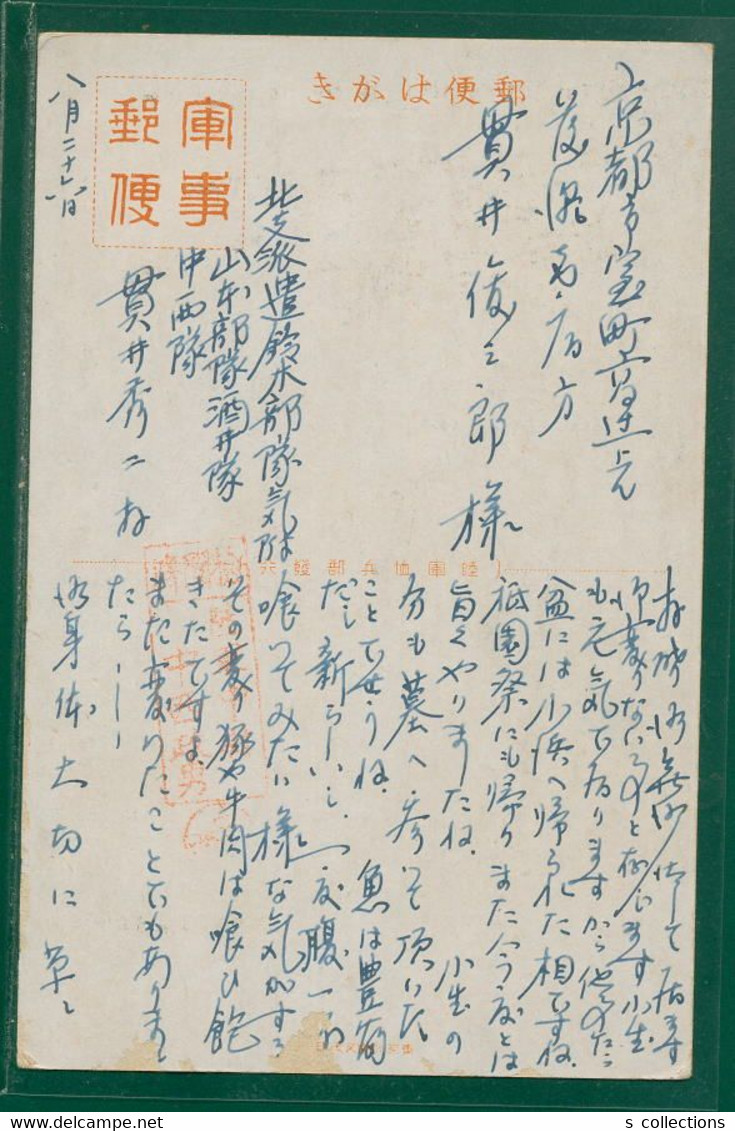 郵便はがき
軍事
郵便
京都市室町
貫井俊三郎様
八月二十六日
北支派遣鈴木部隊気付
山本部隊酒井隊
中西隊
貫井秀二
陸軍恤兵部發行
御無沙汰して居ます
御変りないことと存じます 小生
も元気で居ります
盆には小浜へ帰られた相ですね
祇園祭にも帰り また今度は
旨くやりましたね 小生の
分も墓へ参って頂いた
ことでせうね 魚は豊富
だし新らしいし、一度腹一杯
喰ってみたい様な気がする
その変り豚や牛肉は喰ひ飽
きたですよ
また変ったことでもありまし
たら
御身体大切に 草々
s collections